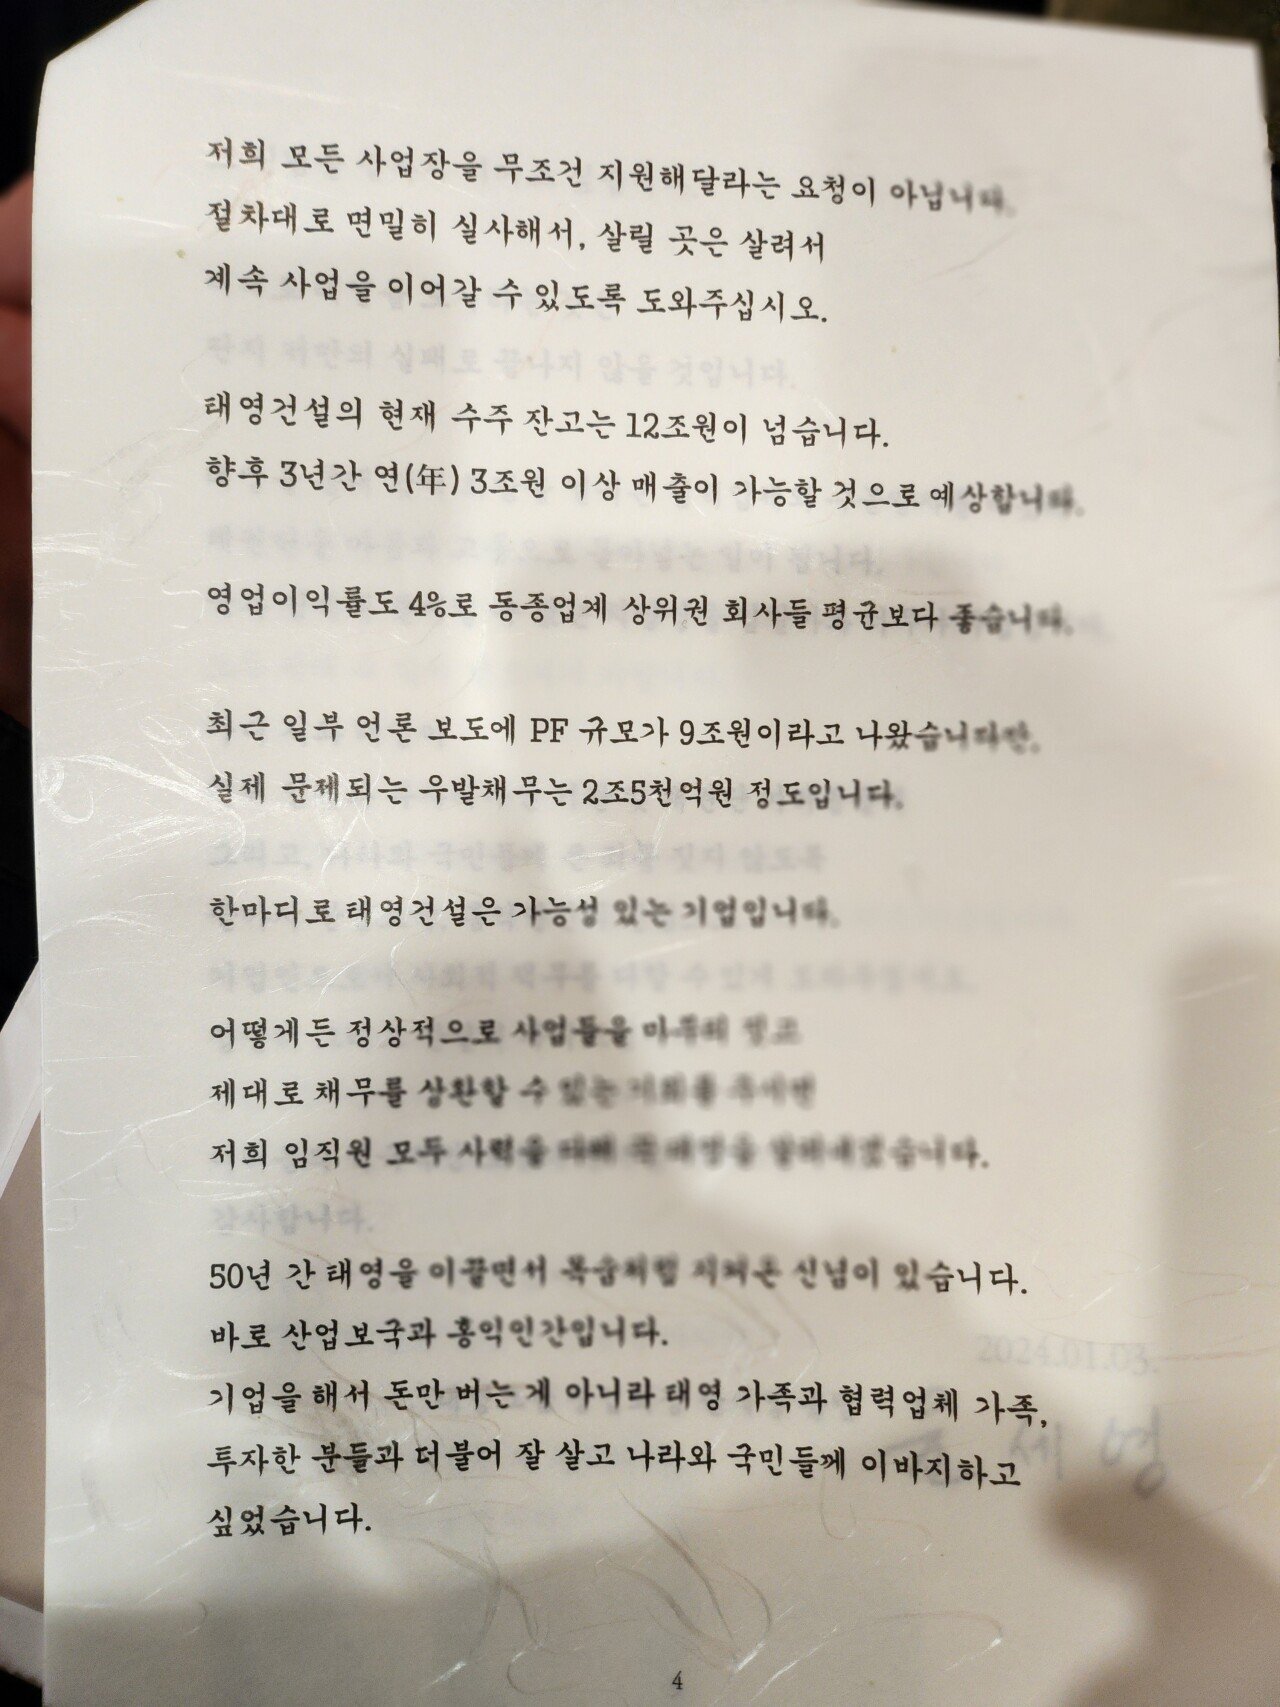 저희 모든 사업장을 무조건 지원해달라는 요청이 아닙니다.
절차대로 면밀히 실사해서, 살릴 곳은 살려서
계속 사업을 이어갈 수 있도록 도와주십시오.
단지 저만의 실패로 끝나지 않을 것입니다.
태영건설의 현재 수주 잔고는 12조원이 넘습니다.
향후 3년간 연(年) 3조원 이상 매출이 가능할 것으로 예상합니다.
영업이익률도 4%로 동종업계 상위권 회사들 평균보다 좋습니다.
최근 일부 언론 보도에 PF 규모가 9조원이라고 나왔습니다만,
실제 문제되는 우발채무는 2조5천억원 정도입니다.
한마디로 태영건설은 가능성 있는 기업입니다.
어떻게든 정상적으로 사업들을 마무리 짓고
제대로 채무를 상환할 수 있는 기회를 주시면
저희 임직원 모두 사력을 다해 태영을 살려내겠습니다.
감사합니다.
50년 간 태영을 이끌면서 목숨처럼 지켜온 신념이 있습니다.
바로 산업보국과 홍익인간입니다.
2024.01.03.
기업을 해서 돈만 버는 게 아니라 태영 가족과 협력업체 가족,
세영
투자한 분들과 더불어 잘 살고 나라와 국민들께 이바지하고
싶었습니다.
4